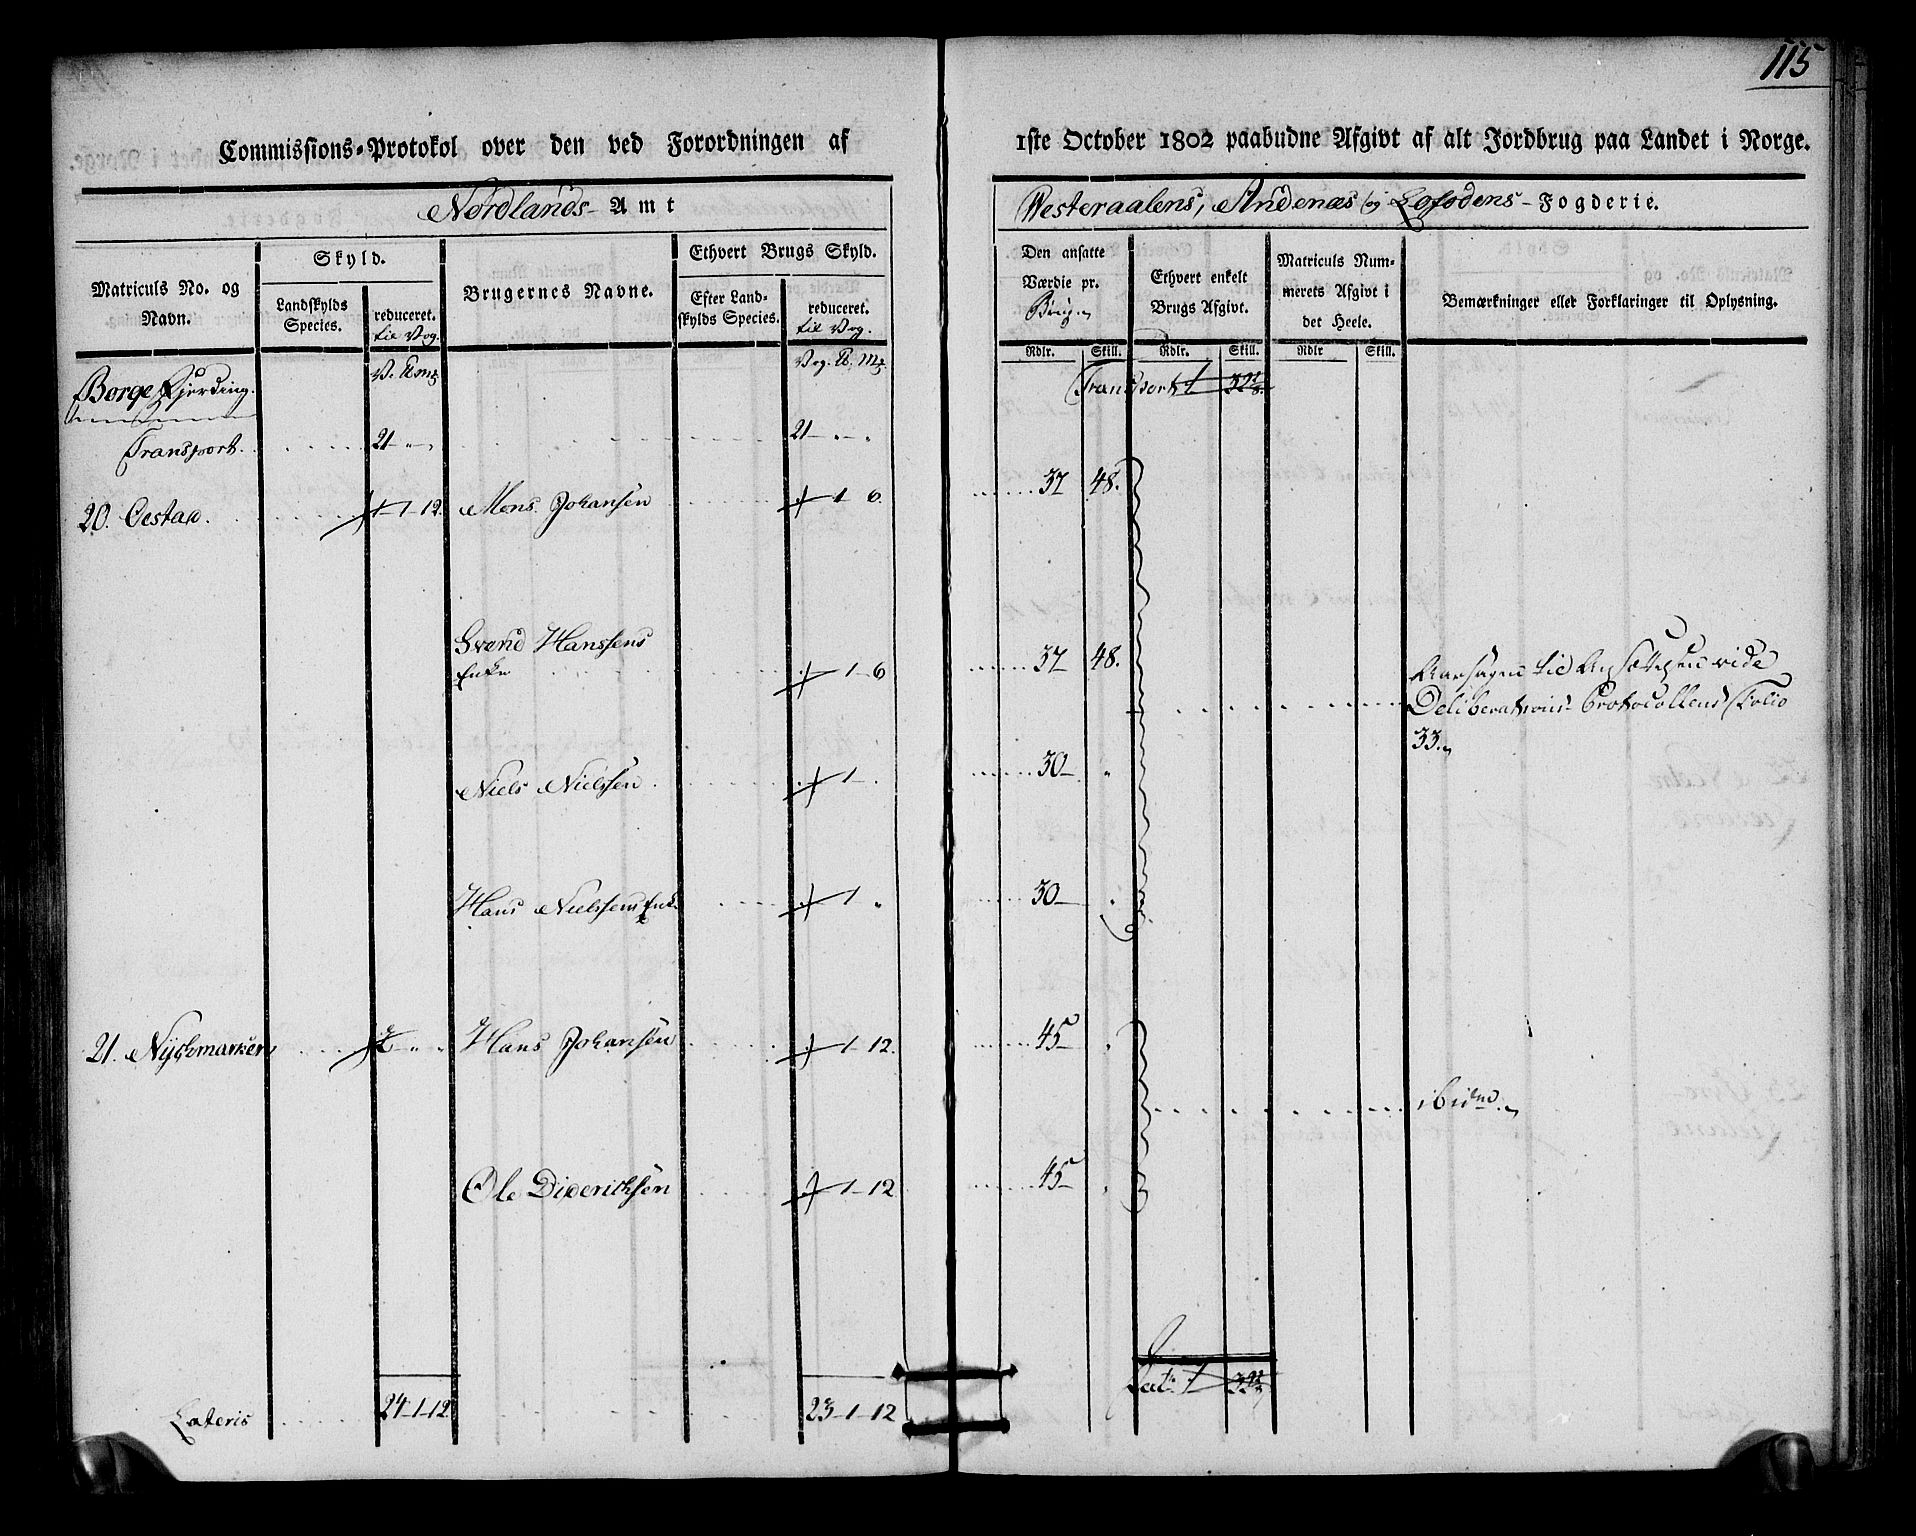 115
Commissions-Protokol over den ved Forordningen af 1ste October 1802 paabudne Afgivt af alt Jordbrug paa Landet i Norge.
Nordlands Amt
Westeraalens, Andenæs og Lofodens-Fogderie.
Matriculs No. og Navn.
Skyld.
Landskylds Species.
reduceret. til Vog.
Brugernes Navne.
Ethvert Brugs Skyld.
Efter Landskylds Species.
reduceret. til Vog.
Den ansatte Værdie pr. Brug
Ethvert enkelt Brugs Afgivt.
Matriculs Nummerets Afgivt i det Heele.
Bemærkninger eller Forklaringer til Oplysning.
Rdlr. Skill. Rdlr. Skill. Rdlr Skill.
Borge Fjerding.
Transport
Transport. 21 21
20. Oestad. 1-12. Mons Johansen 1 6. 37 48.
Svend Hanssens Enke 1 6 37 48.
Aarsagen til Ansættelsen vide
Deliberations-Protocollens Folio
33.
Niels Nielssen. 1 30
Hans Nielssens Enke 1 30
21. Hans Johansen 1 12. 45
ibidem
Ole Diderichsen 1 12 45
Lateris 24-1-12 23-1-12 Lat.